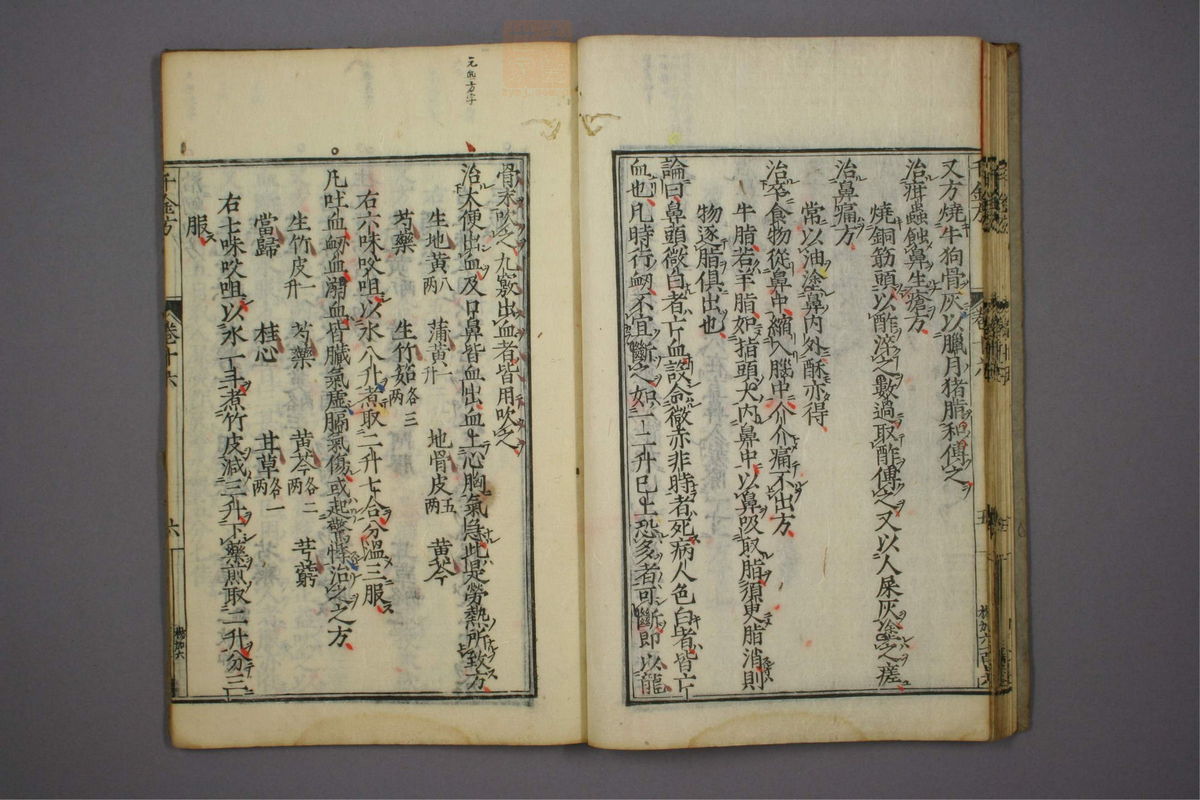 又方燒牛狗骨灰以臘月猪脂和傅之
治疳蟲蝕鼻生瘡方
燒銅筋頭以酢淬之數過取酢傅之又以人屎灰塗之瘥
治鼻痛方
常以油塗鼻内外酥亦得
治卒食物從鼻中縮入腦中介介痛不出方
牛脂若羊脂如指頭大内鼻中以鼻吸取脂須更脂消則
物逐脂俱出也
論曰鼻頭微白者亡血設令微赤非時者死病人色白者皆亡
血也凡時行衂不宜斷之如一二升已上恐多者可斷即以龍
千金方
卷十六
五
骨末吹之九竅出血者皆用吹之
治大便出血及口鼻皆血出血上心胸氣急此是勞熱所致方
生地黄八兩 蒲黄一升 地骨皮五兩 黄芩
芍藥 生竹筎各三兩
右六味㕮咀以水八升煮取二升七合分温三服
凡吐血衂血溺血皆臟氣虚膈氣傷或起驚悸治之之方
生竹皮一升 芍藥 黄芩各二兩 芎藭
當歸 桂心 甘草各一兩
右七味㕮咀以水一斗煮竹皮減三升下藥煎取二升分三
服
千金方
卷十六
六